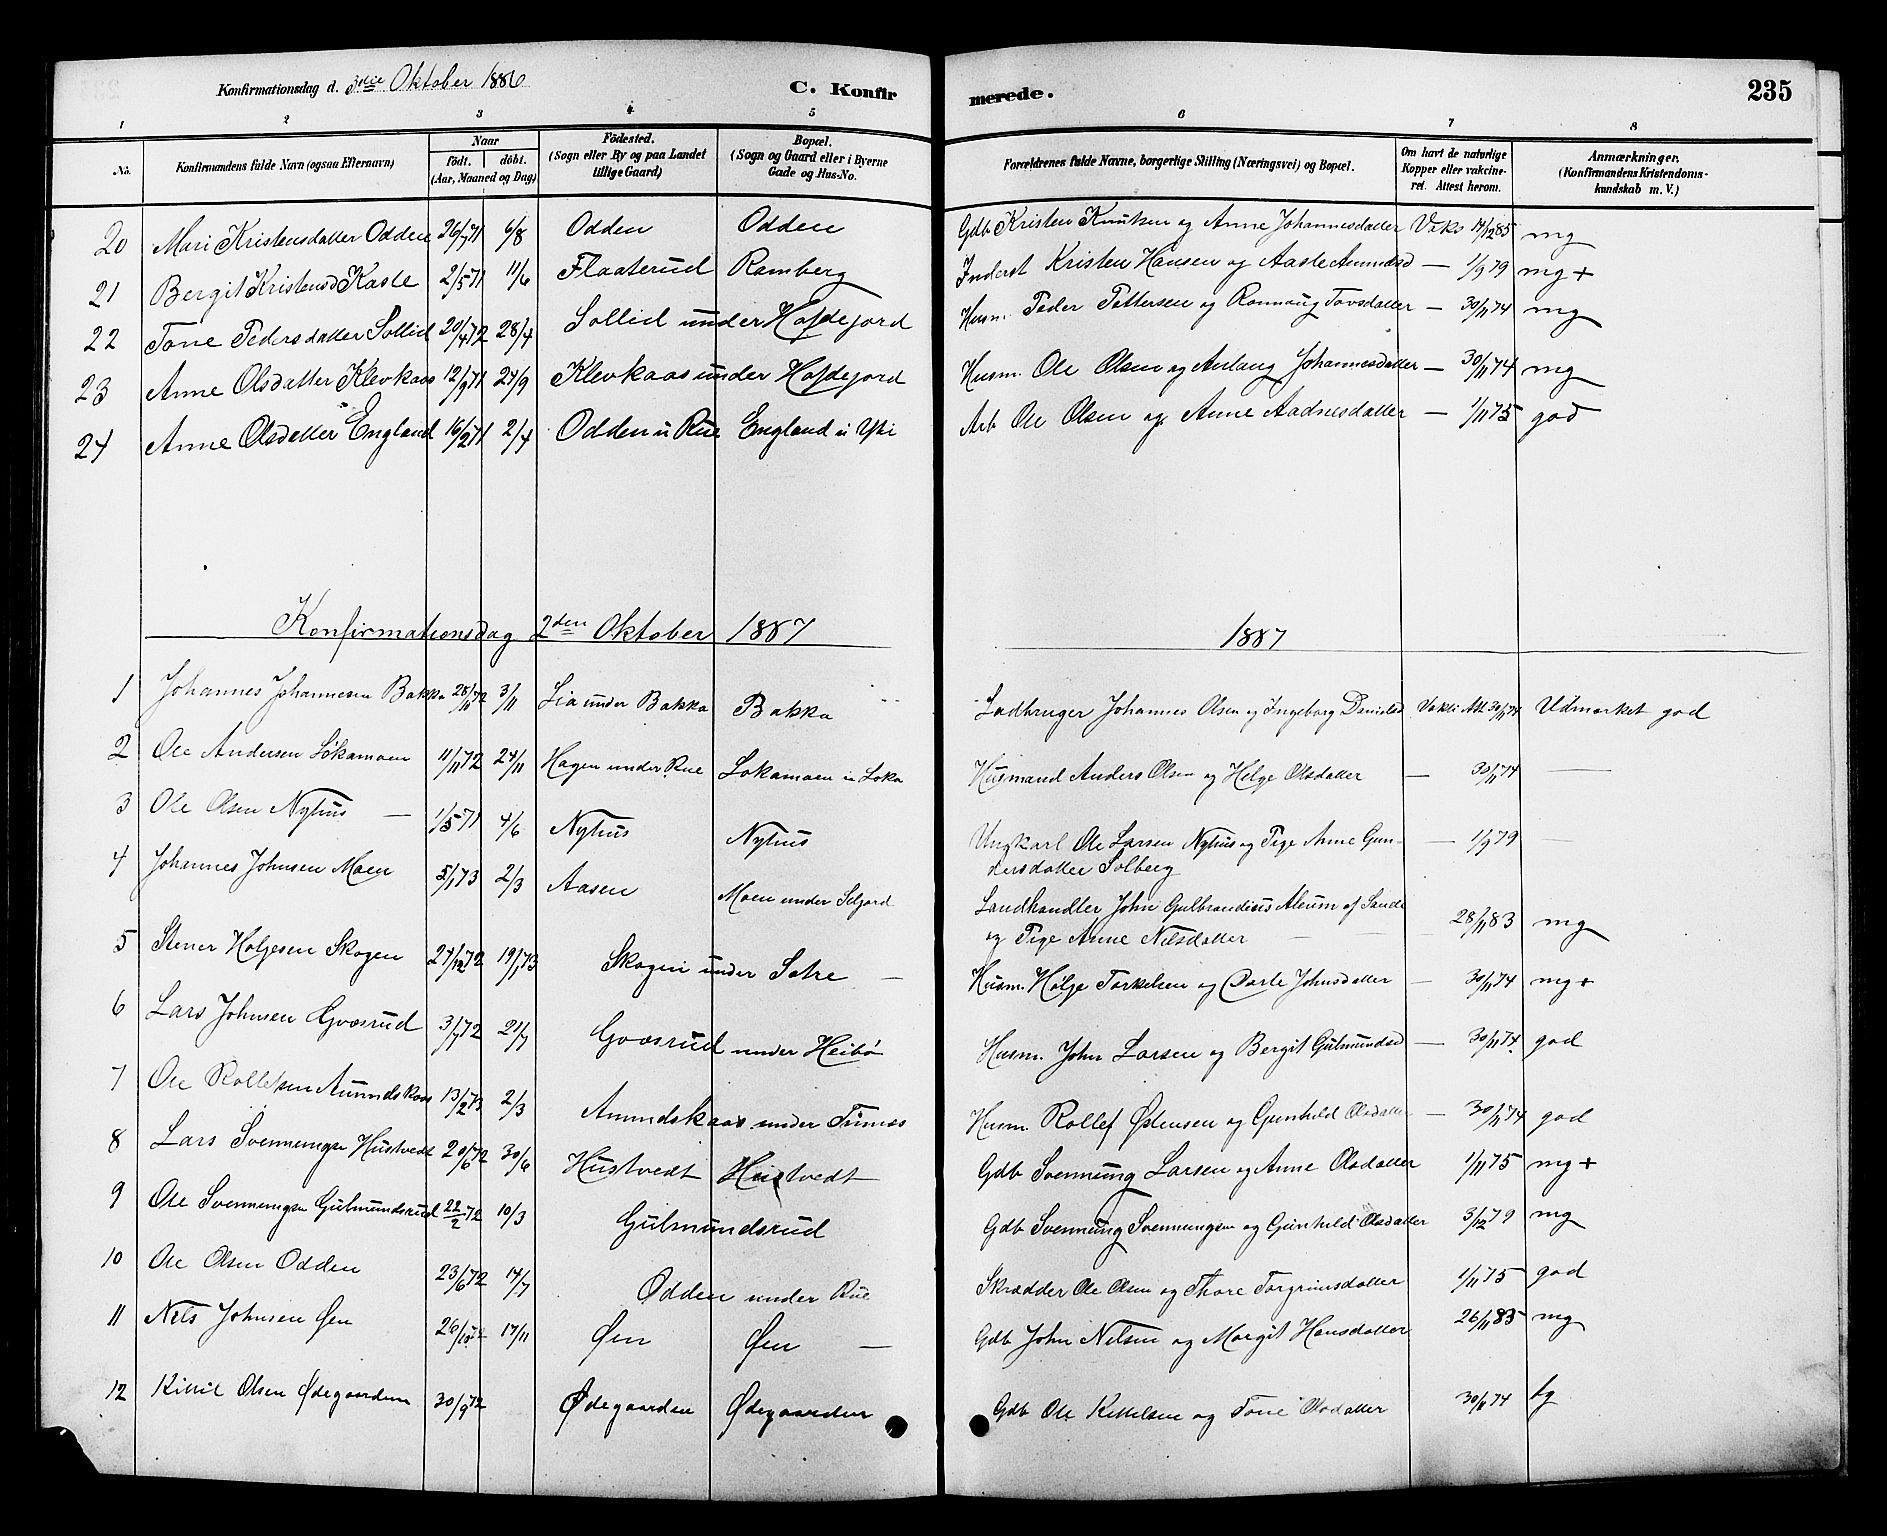 Konfirmationsdag d. 3die Oktober 1886
C. Konfir
merede.
235
1 2 3 4 5 6 7 8
No.
Konfirmandens fulde Navn (ogsaa Efternavn)
Naar
födt. döbt.
(Aar, Maaned og Dag)
Födested.
(Sogn eller By og paa Landet
tillige Gaard)
Bopæl.
(Sogn og Gaard eller i Byerne
Gade og Hus-No.
Forældrenes fulde Navne, borgerlige Stilling (Næringsvei) og Bopæl.
Om havt de naturlige
Kopper eller vakcine-
ret. Attest herom.
Anmærkninger.
(Konfirmandens Kristendoms-
kundskab m. V.)
20 Mari Kristensdatter Odden 26/7 71 6/8 Odden Odden Gdb Kristen Knutsen og Anne Johannesdatter Vaks 14/12 85 mg
21 Bergit Kristensd Kaste 2/5 71 11/6 Flaaterud Ramberg Inderst Kristen Hansen og Aaste Amundsd — 1/9 79 mg +
22 Tone Pedersdatter Sollid 20/4 72 28/4 Sollid under Hofdejord Husm. Peder Pettersen og Rannaug Tovsdatter — 30/11 74 mg
23 Anne Olsdatter Klevkaas 12/9 71 24/9 Klevkaas under Hofdejord Husm. Ole Olsen og Anlaug Johannesdatter — 30/11 74 mg
24 Anne Olsdatter England 16/2 71 2/4 Odden u Rue England u Arb Ole Olsen og Anne Aadnesdatter — 1/11 75 god
Konfirmationsdag 2den Oktober 1887
1887
1 Johannes Johannesen Bakka 28/11 72 3/11 Lia under Bakka Bakka Johannes Olsen og Ingeborg Danielsd Vakci Att 30/11 74 Udmærket god
2 Ole Andersen Lökamoen 11/11 72 24/11 Hagen under Rue Lokamoen u Loka Husmand Anders Olsen og Helge Olsdatter — 30/11 74 —
3 Ole Olsen Nyhus — 1/5 71 4/6 Nyhus Nyhus Ungkarl Ole Larsen Nyhus og Pige Anne Gun-
dersdatter Solberg — 1/9 79 —
4 Johannes Johnsen Moen 5/1 73 2/3 Aasen Moen under Seljord Landhandler John Gulbrandsen af Sande
og Pige Anne Nilsdatter 28/11 83 mg
5 Stener Holjesen Skogen 27/12 72 19/1 73 Skogen under Satre — Husm. Holge Torkelsen og Dorte Johnsdatter — 30/11 74 mg +
6 Lars Johnsen Gvosrud 3/7 72 21/7 Gvosrud under Heibö Husm. John Larsen og Bergit Gulmundsd — 30/11 74 god
7 Ole Rollefsen Amundskaas 13/2 73 2/3 Amundskaas under Tinnæs Husm. Rollef Østensen og Gunhild Olsdatter — 30/11 74 god
8 Lars Svennungsen Hustvedt 20/6 72 30/6 Hustvedt Hustvedt Gdb Svennung Larsen og Anne Olsdatter 1/11 75 mg +
9 Ole Svennungsen Gulmundsrud 22/2 72 10/3 Gulmundsrud Gdb Svennung Svennungsen og Gunhild Olsdatter 3/12 79 mg
10 Ole Olsen Odden 23/6 72 14/7 Odden under Rue Skrædder Ole Olsen og Thore Torgrimsdatter 1/11 75 god
11 Nils Johnsen Øen 26/10 72 17/11 Øen Øen — Gdb John Nilsen og Margit Hansdatter 26/11 83 mg
12 Kittil Olsen Ødegaarden 30/9 72 Ødegaarden Ødegaarden Gdb Ole Kittelsen og Tone Olsdatter 30/11 74 tg